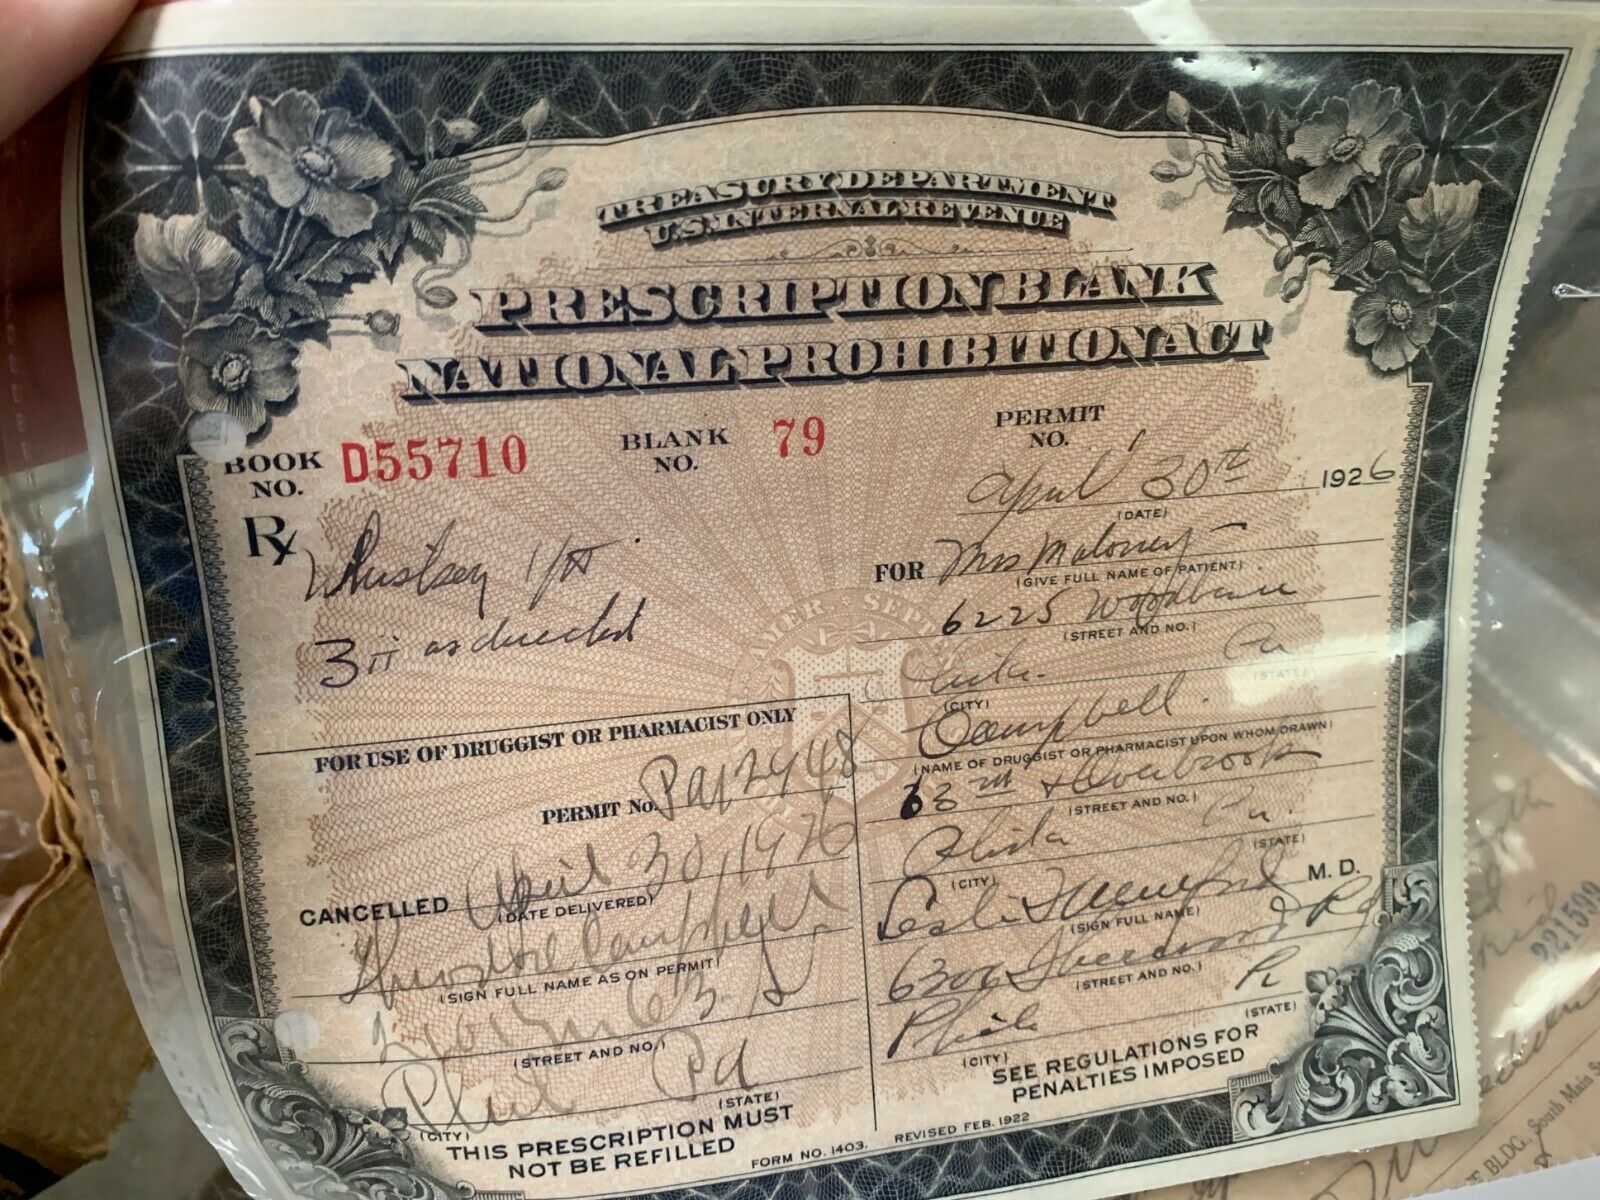 TREASURY DEPARTMENT
U.S. INTERNAL REVENUE
PRESCRIPTION BLANK
NATIONAL PROHIBITION ACT
BOOK NO. D55710
BLANK NO. 79
PERMIT NO.
April 30th 1926
(DATE)
Rx
Whiskey
as directed
FOR Mrs Maloney
(GIVE FULL NAME OF PATIENT)
6225 Woodbine
(STREET AND NO.)
Phila. Pa
(CITY) (STATE)
Campbell.
(NAME OF DRUGGIST OR PHARMACIST UPON WHOM DRAWN)
63rd + Overbrook
(STREET AND NO.)
Phila Pa.
(CITY) (STATE)
Leslie M. D.
(SIGN FULL NAME)
6306 Rd
(STREET AND NO.)
Phila Pa
(CITY) (STATE)
SEE REGULATIONS FOR
PENALTIES IMPOSED
FOR USE OF DRUGGIST OR PHARMACIST ONLY
PERMIT No. Pa 12448
CANCELLED April 30, 1926
(DATE DELIVERED)
Theodore Campbell
(SIGN FULL NAME AS ON PERMIT)
63
(STREET AND NO.)
Phil Pa
(CITY) (STATE)
THIS PRESCRIPTION MUST
NOT BE REFILLED
FORM NO. 1403.
REVISED FEB. 1922
AMER SEPT
221599
BLDG. South Main